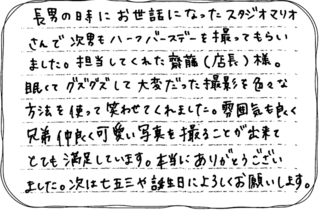 長男の時にお世話になったスタジオマリオ
さんで次男もハーフバースデーを撮ってもらい
ました。担当してくれた齋藤(店長)様。
眠くてグズグズして大変だった撮影を色々な
方法を使って笑わせてくれました。雰囲気も良く
兄弟仲良く可愛い写真を撮ることが出来て
とても満足しています。本当にありがとうござい
ました。次は七五三や誕生日によろしくお願いします。